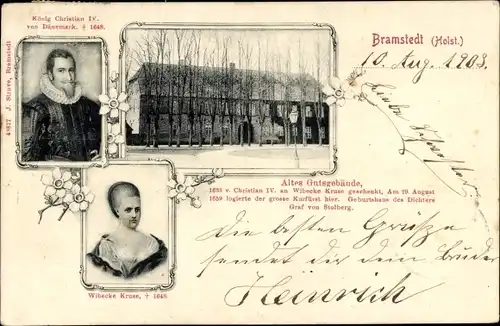 König Christian IV.
von Dänemark. † 1648.
Bramstedt (Holst.)
10. Aug. 1903.
43817 J. Struve, Bramstedt
Altes Gutsgebäude,
1633 v. Christian IV. an Wibecke Kruse geschenkt. Am 29. August
1659 logierte der grosse Kurfürst hier. Geburtshaus des Dichters
Graf von Stolberg.
Wibecke Kruse, † 1648.
Die besten Grüße
sendet dir dein Bruder
Heinrich